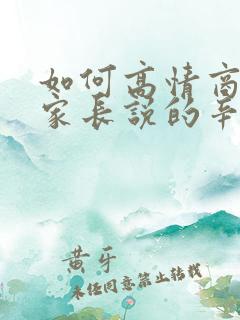 如何高情商
家长说的辛
黄牙
未经同意禁止转载